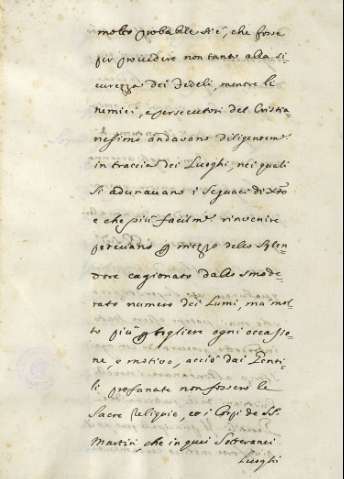 molto probabile si è, che fosse
per provedere non tanto alla si-
curezza dei Fedeli, mentre li
nemici, e persecutori del Cristia-
nesimo andavano diligentemᵉ
in traccia dei Luoghi, nei quali
si adunavano i Seguaci di Xto
e che più facilmᵉ rinvenire
potevano p mezzo dello Splen-
dore cagionato dallo smode-
rato numero dei Lumi, ma mol-
to più p togliere ogni occasio-
ne, e motivo, acciò dai Genti-
li profanate non fossero le
Sacre Reliquie, ed i Corpi de SS.
Martiri, che in quei Sotterranei
Luoghi